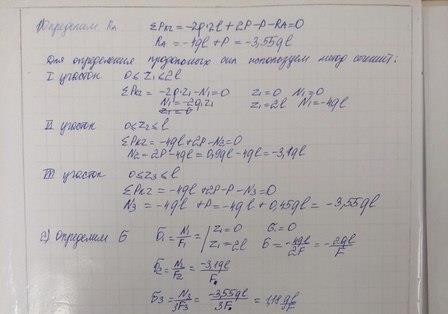 1) Определим RA   ΣPKZ = -2q·2l + 2P - P - RA = 0
RA = -4ql + P = -3,55ql
Для определения продольных сил используем метод сечений:
I участок   0 ≤ z1 ≤ 2l
ΣPKZ = -2q·z1 - N1 = 0   z1 = 0   N1 = 0
N1 = -2qz1   z1 = 2l   N1 = -4ql
z1 = 0
II участок   0 ≤ z2 ≤ l
ΣPKZ = -4ql + 2P - N2 = 0
N2 = 2P - 4ql = 0,9ql - 4ql = -3,1ql
III участок   0 ≤ z3 ≤ l
ΣPKZ = -4ql + 2P - P - N3 = 0
N3 = -4ql + P = -4ql + 0,45ql = -3,55ql
2) Определим б   б1 = N1/F1 = | z1 = 0   б = 0
z1 = 2l   б = -4ql/2F = -2ql/F
б2 = N2/F2 = -3,1ql/F
б3 = N3/3F3 = -3,55ql/3F = 1,18 ql/F